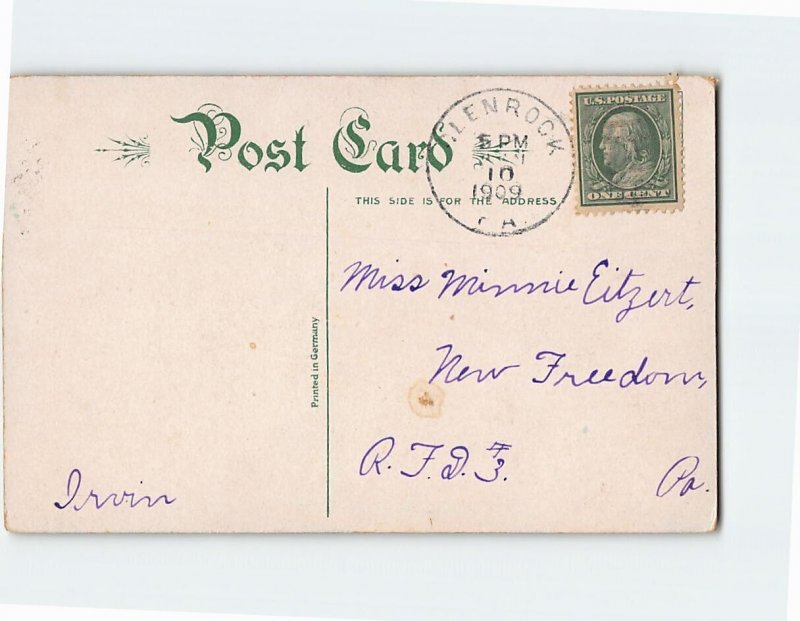 Post Card
THIS SIDE IS FOR THE ADDRESS
GLENROCK
5 PM
10
1909
PA.
U.S. POSTAGE
ONE CENT
Miss Minnie Eitzert,
New Freedom,
R.F.D. #3.
Pa.
Printed in Germany
Irvin